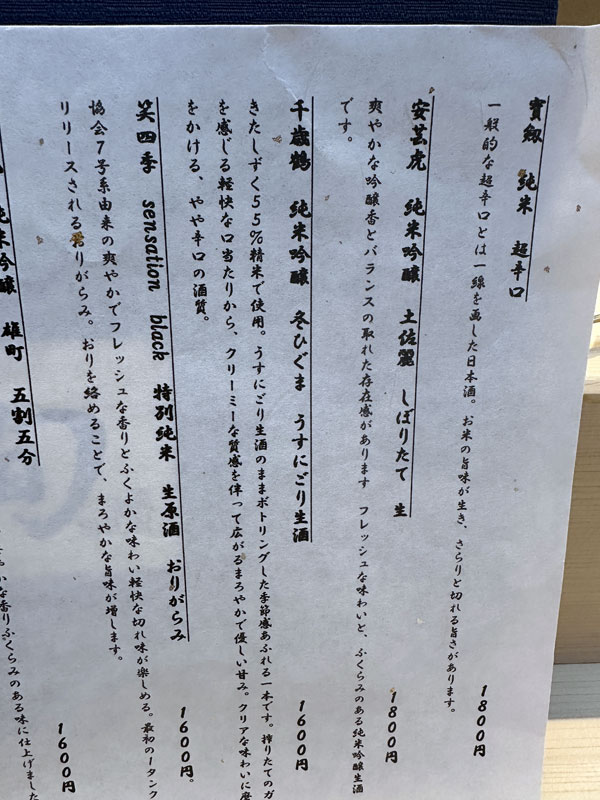 寳劔 純米 超辛口
一般的な超辛口とは一線を画した日本酒。お米の旨味が生き、さらりと切れる旨さがあります。
1800円
安芸虎 純米吟醸 土佐麗 しぼりたて 生
爽やかな吟醸香とバランスの取れた存在感があります フレッシュな味わいと、ふくらみのある純米吟醸生酒
です。
1800円
千歳鶴 純米吟醸 冬ひぐま うすにごり生酒
きたしずく55%精米で使用。うすにごり生酒のままボトリングした季節感あふれる一本です。搾りたてのガ
を感じる軽快な口当たりから、クリーミーな質感を伴って広がるまろやかで優しい甘み。クリアな味わいに磨
をかける、やや辛口の酒質。
1600円
笑四季 sensation black 特別純米 生原酒 おりがらみ
協会7号系由来の爽やかでフレッシュな香りとふくよかな味わい軽快な切れ味が楽しめる。最初の1タンク
リリースされるおりがらみ。おりを絡めることで、まろやかな旨味が増します。
1600円。
純米吟醸 雄町 五割五分
やかな香りふくらみのある味に仕上げました
1600円